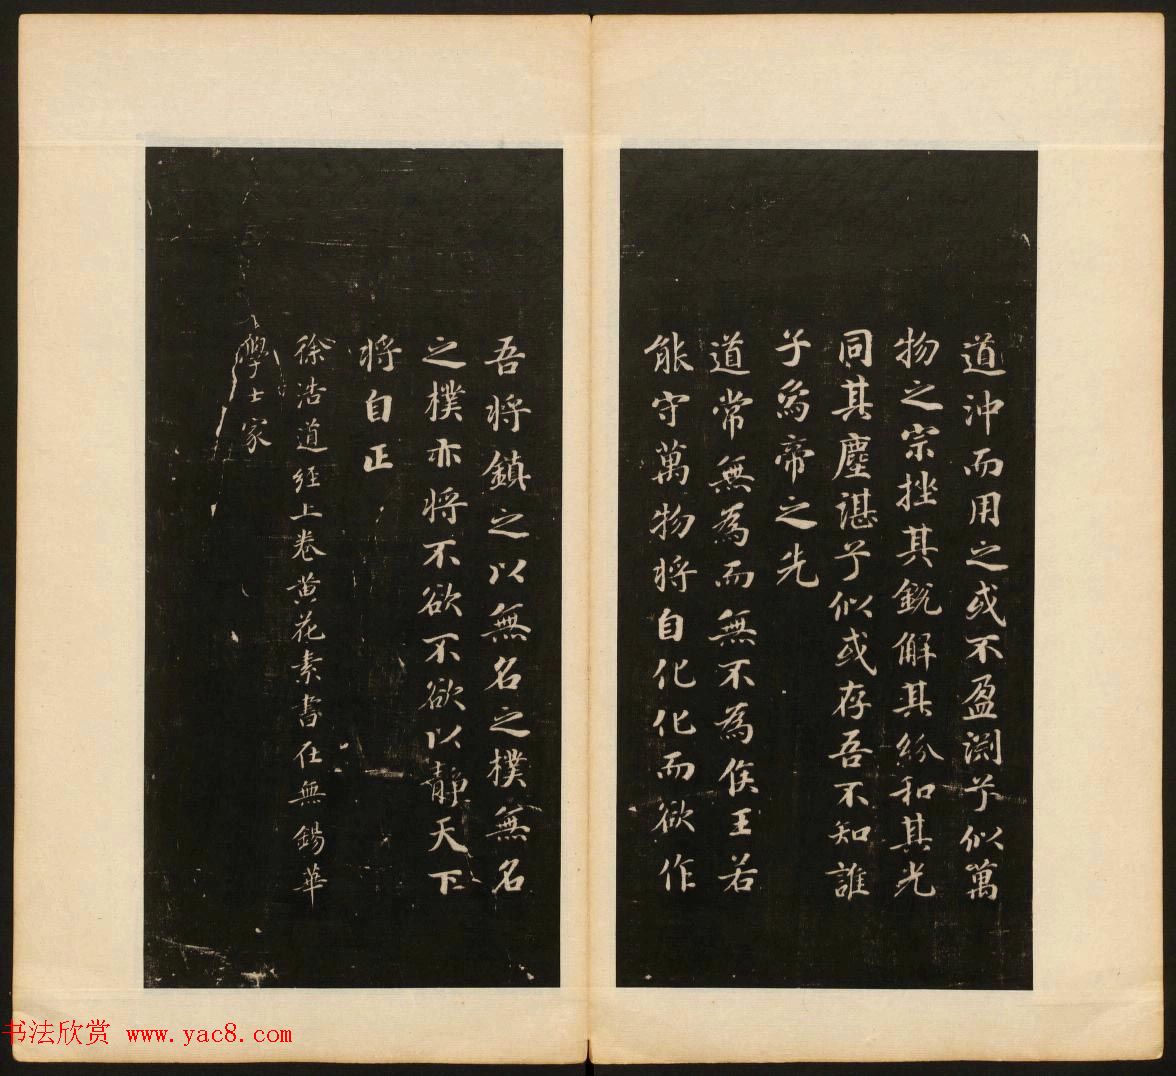 道沖而用之或不盈淵兮似萬
物之宗挫其銳解其紛和其光
同其塵湛兮似或存吾不知誰
子為帝之先
道常無為而無不為侯王若
能守萬物將自化化而欲作
吾將鎮之以無名之樸無名
之樸亦將不欲不欲以靜天下
將自正
徐浩道經上卷黄花素書在無錫華
學士家
书法欣赏 www.yac8.com